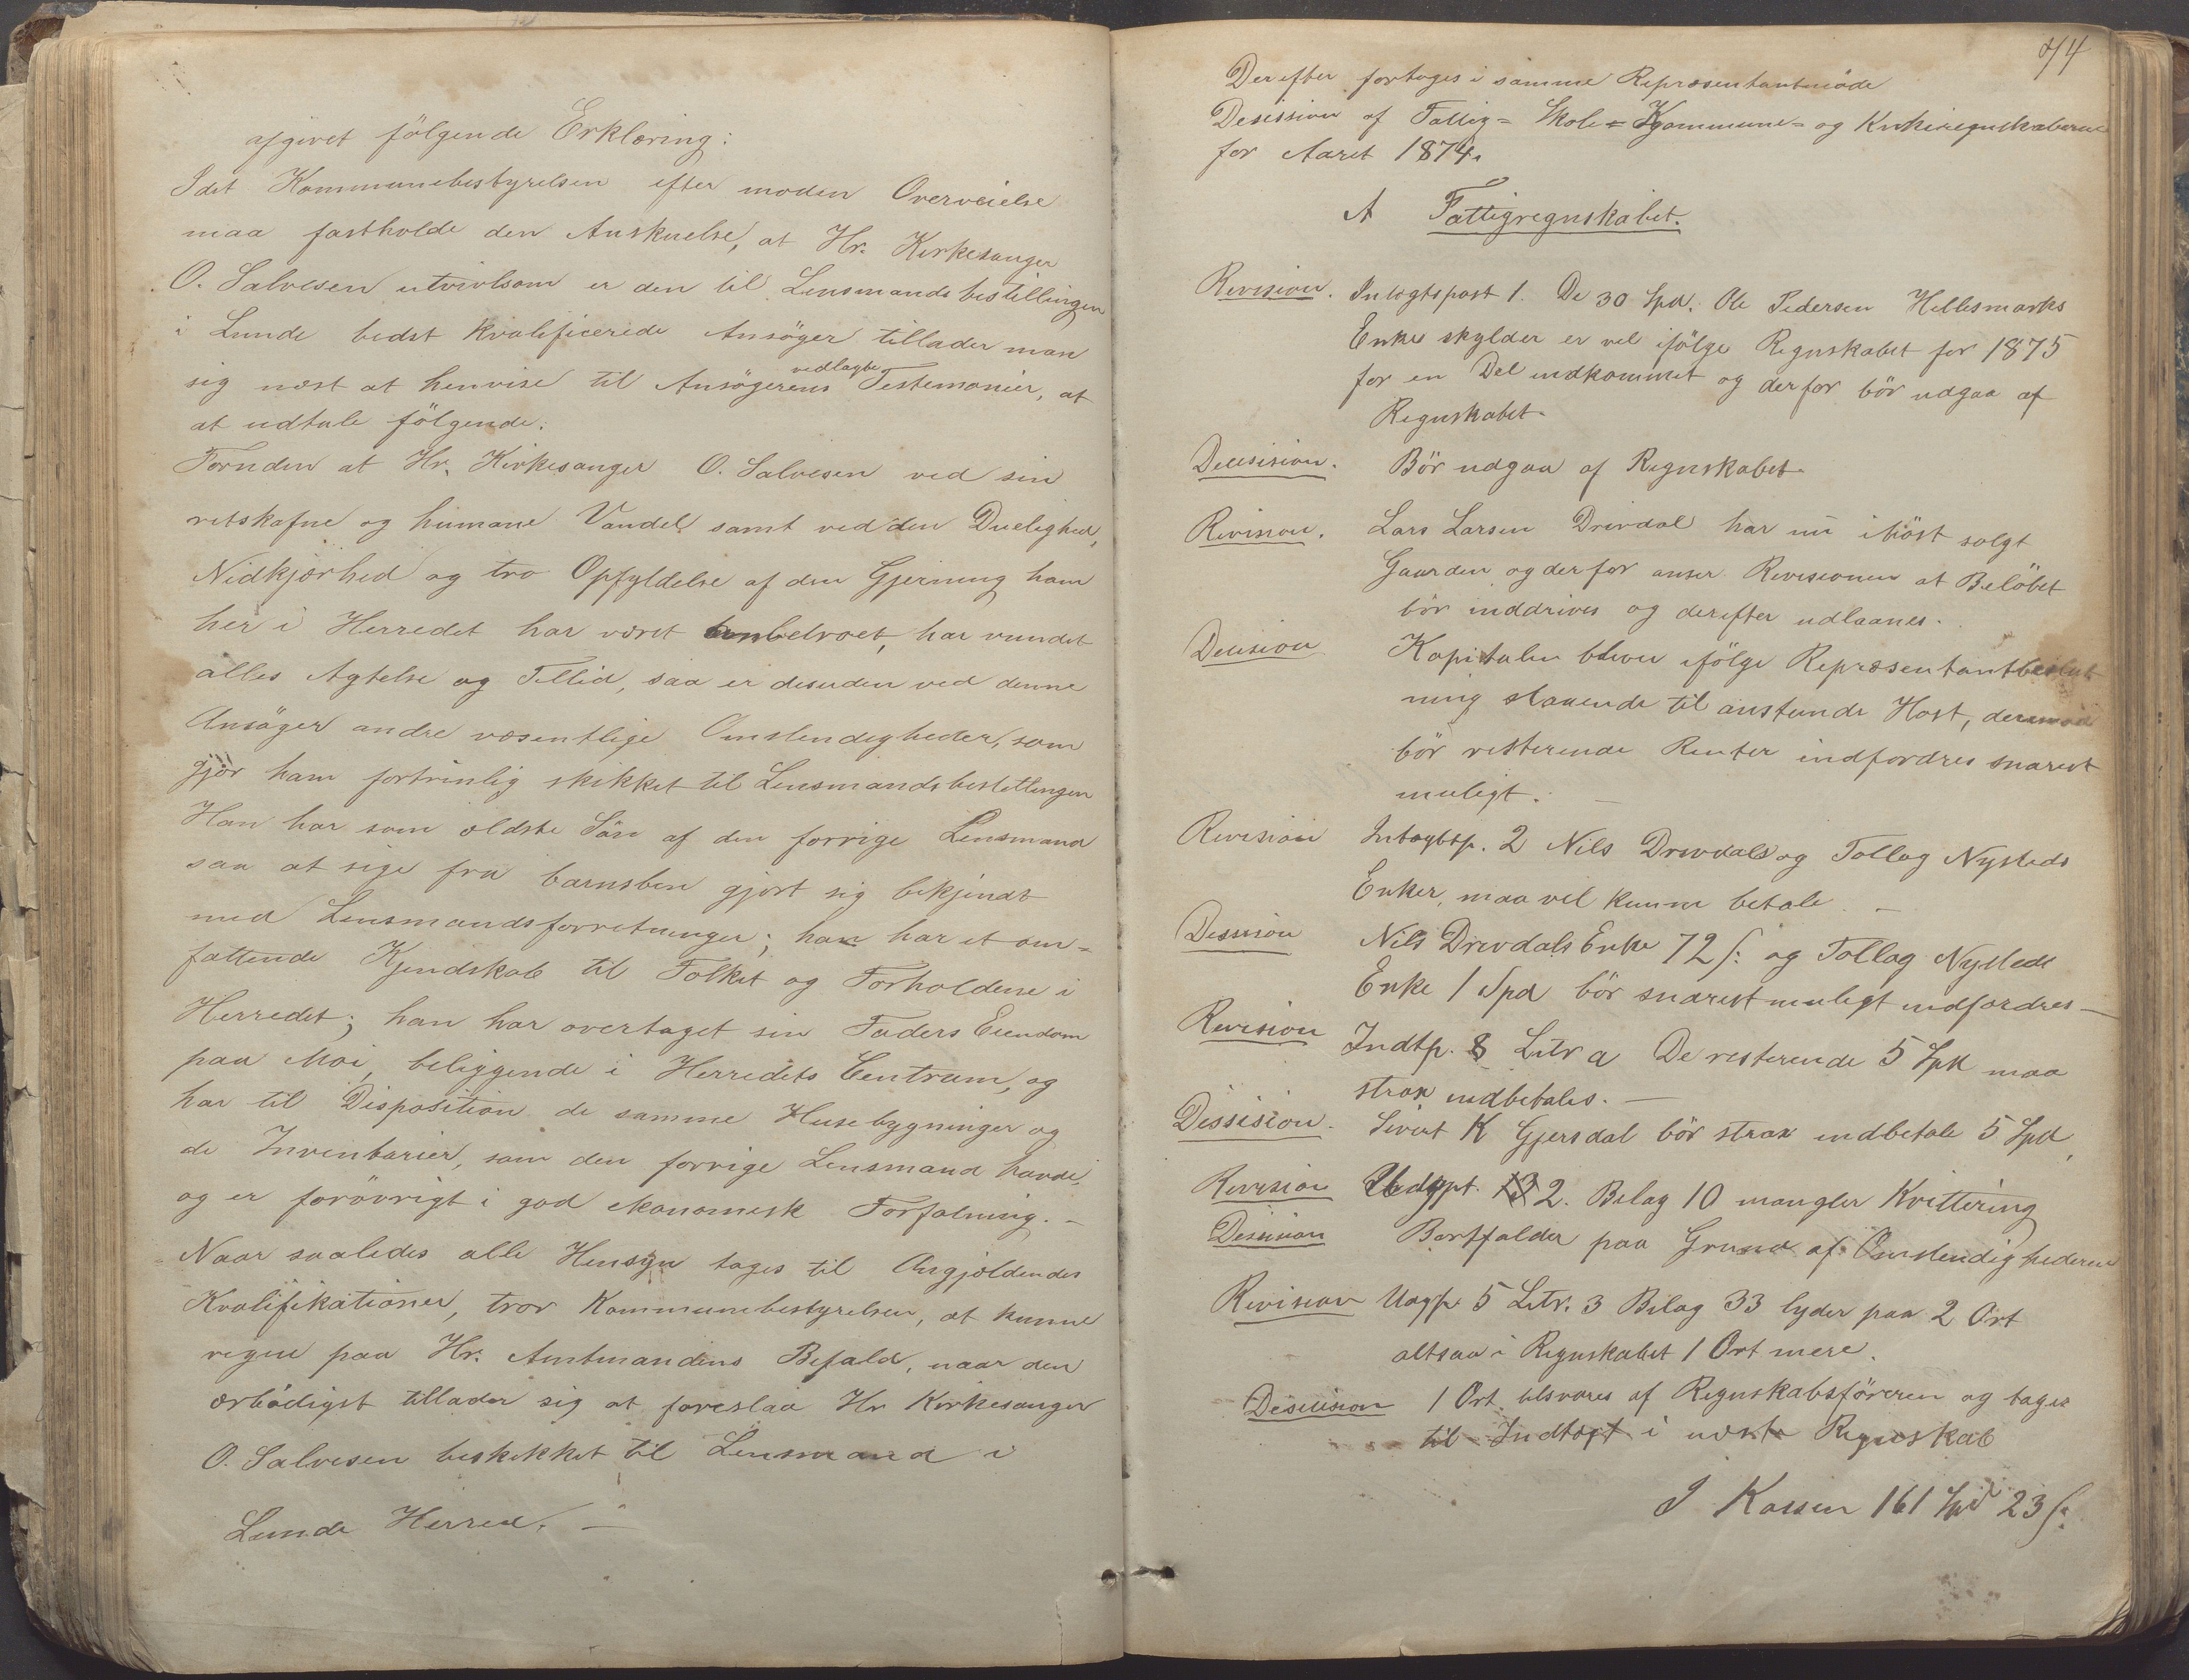 afgivet følgende Erklæring:
Idet Kommunebestyrelsen efter moden Overveielse
maa fastholde den Anskuelse, at Hr. Kirkesanger
O. Salvesen utvivlsom er den til Lensmandsbestillingen
i Lunde bedst kvalificerede Ansøger tillader man
sig næst at henvise til Ansøgerens vedlagte Testemonier, at
at udtale følgende:
Foruden at Hr. Kirkesanger O. Salvesen ved sin
retskafne og humane Vandel samt ved den Duelighed,
Nidkjærhed og tro Opfyldelse af den Gjerning ham
her i Herredet har været anbetroet, har vundet
alles Agtelse og Tillid, saa er desuden ved denne
Ansøger andre væsentlige Omstendigheder, som
gjør ham fortrinlig skikket til Lensmandsbestillingen
Han har som ældste Søn af den forrige Lensmand
saa at sige fra barnsben gjort sig bekjendt
med Lensmandsforretninger; han har et om=
fattende Kjendskab til Folket og Forholdene i
Herredet; han har overtaget sin Faders Eiendom
paa Moi, beliggende i Herredets Centrum, og
har til Disposition de samme Husebygninger og
de Inventarier, som den forrige Lensmand havde,
og er forøvrigt i god økonomisk Forfatning. —
Naar saaledes alle Hensyn tages til Angjældendes
Kvalifikationer, tror Kommunebestyrelsen, at kunne
regne paa Hr. Amtmandens Bifald, naar den
ærbødigst tillader sig at foreslaa Hr Kirkesanger
O. Salvesen beskikket til Lensmand i
Lunde Herred. —
74
Derefter fortages i samme Repræsentantmøde
Desission af Fattig= Skole= Kommune= og Kirkeregnskaberne
for Aaret 1874.
A Fattigregnskabet.
Revision. Indtægtspost 1. De 30 Spd. Ole Pedersen Hellesmarks
Enke skylder er vel ifølge Regnskabet for 1875
for en Del indkommet og derfor bør udgaa af
Regnskabet.
Decisision. Bør udgaa af Regnskabet.
Revision. Lars Larsen Drivdal har nu i høst solgt
Gaarden og derfor anser Revisionen at Beløbet
bør inddrives og derefter udlaanes.
Decision Kapitalen bliver ifølge Repræsentantbeslut
ning staaende til anstundende Høst, derimod
bør resterende Renter indfordres snarest
muligt. —
Revision Indtægtsp. 2 Nils Drivdals og Tollag Nysteds
Enker, maa vel kunne betale. —
Dessision Nils Drivdals Enke 72 s: og Tollag Nysteds
Enke 1 Spd bør snarest muligt indfordres —
Revision Indtp. 8 Litr a De resterende 5 Spd maa
strax indbetales. —
Dessision. Sivert K Gjersdal bør strax indbetale 5 Spd,
Revision Udgpt. 2. Bilag 10 mangler Kvittering
Desision Bortfalder paa Grund af Omstendighederne
Revision Udgp. 5 Litr. 3 Bilag 33 lyder paa 2 Ort
altsaa i Regnskabet 1 Ort mere.
Desicision 1 Ort tilsvares af Regnskabsføreren og tages
til Indtægt i næste Regnskab
I Kassen 161 Spd 23 s: